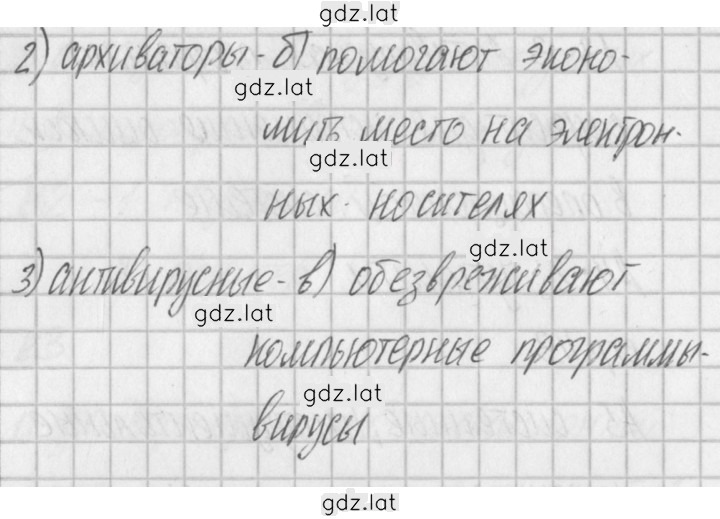 gdz.lat
2) архиваторы - б) помогают эконо-
gdz.lat
мить место на электрон-
gdz.lat
ных носителях
gdz.lat
3) антивирусные - в) обезвреживают
gdz.lat
компьютерные программы-
gdz.lat
вирусы
gdz.lat